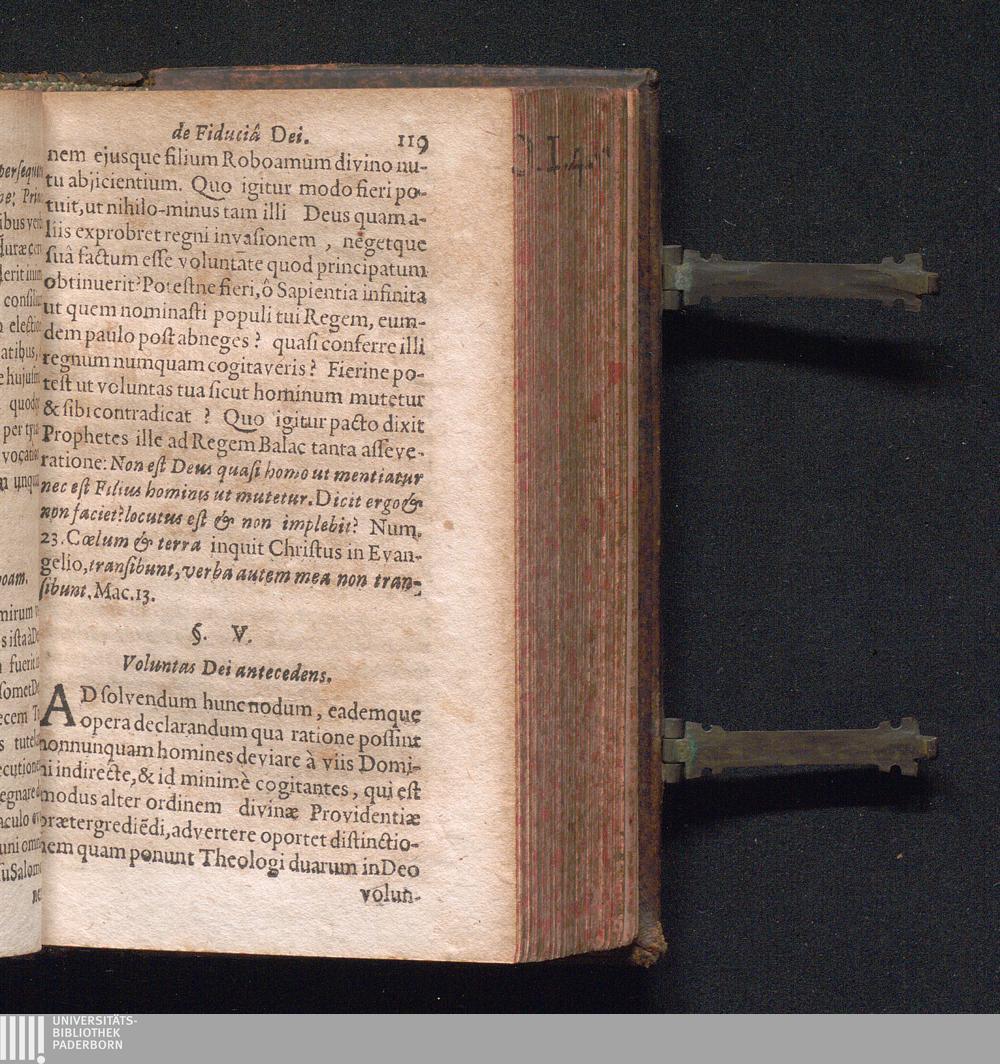 de Fiduciâ Dei. 119
nem ejusque filium Roboamum divino nu-
tu abjicientium. Quo igitur modo fieri po-
tuit, ut nihilo-minus tam illi Deus quam a-
liis exprobret regni invasionem, negetque
suâ factum esse voluntate quod principatum
obtinuerit? Potestne fieri, ô Sapientia infinita
ut quem nominasti populi tui Regem, eum-
dem paulo post abneges? quasi conferre illi
regnum numquam cogitaveris? Fierine po-
test ut voluntas tua sicut hominum mutetur
& sibi contradicat? Quo igitur pacto dixit
Prophetes ille ad Regem Balac tanta asseve-
ratione: Non est Deus quasi homo ut mentiatur
nec est Filius hominis ut mutetur. Dicit ergo &
non faciet? locutus est & non implebit? Num.
23. Cœlum & terra inquit Christus in Evan-
gelio, transibunt, verba autem mea non tran-
sibunt. Mac. 13.
§. V.
Voluntas Dei antecedens.
AD solvendum hunc nodum, eademque
opera declarandum qua ratione possint
nonnunquam homines deviare à viis Domi-
ni indirecte, & id minimè cogitantes, qui est
modus alter ordinem divinæ Providentiæ
prætergrediẽdi, advertere oportet distinctio-
nem quam ponunt Theologi duarum in Deo
volun-
UNIVERSITÄTS-
BIBLIOTHEK
PADERBORN